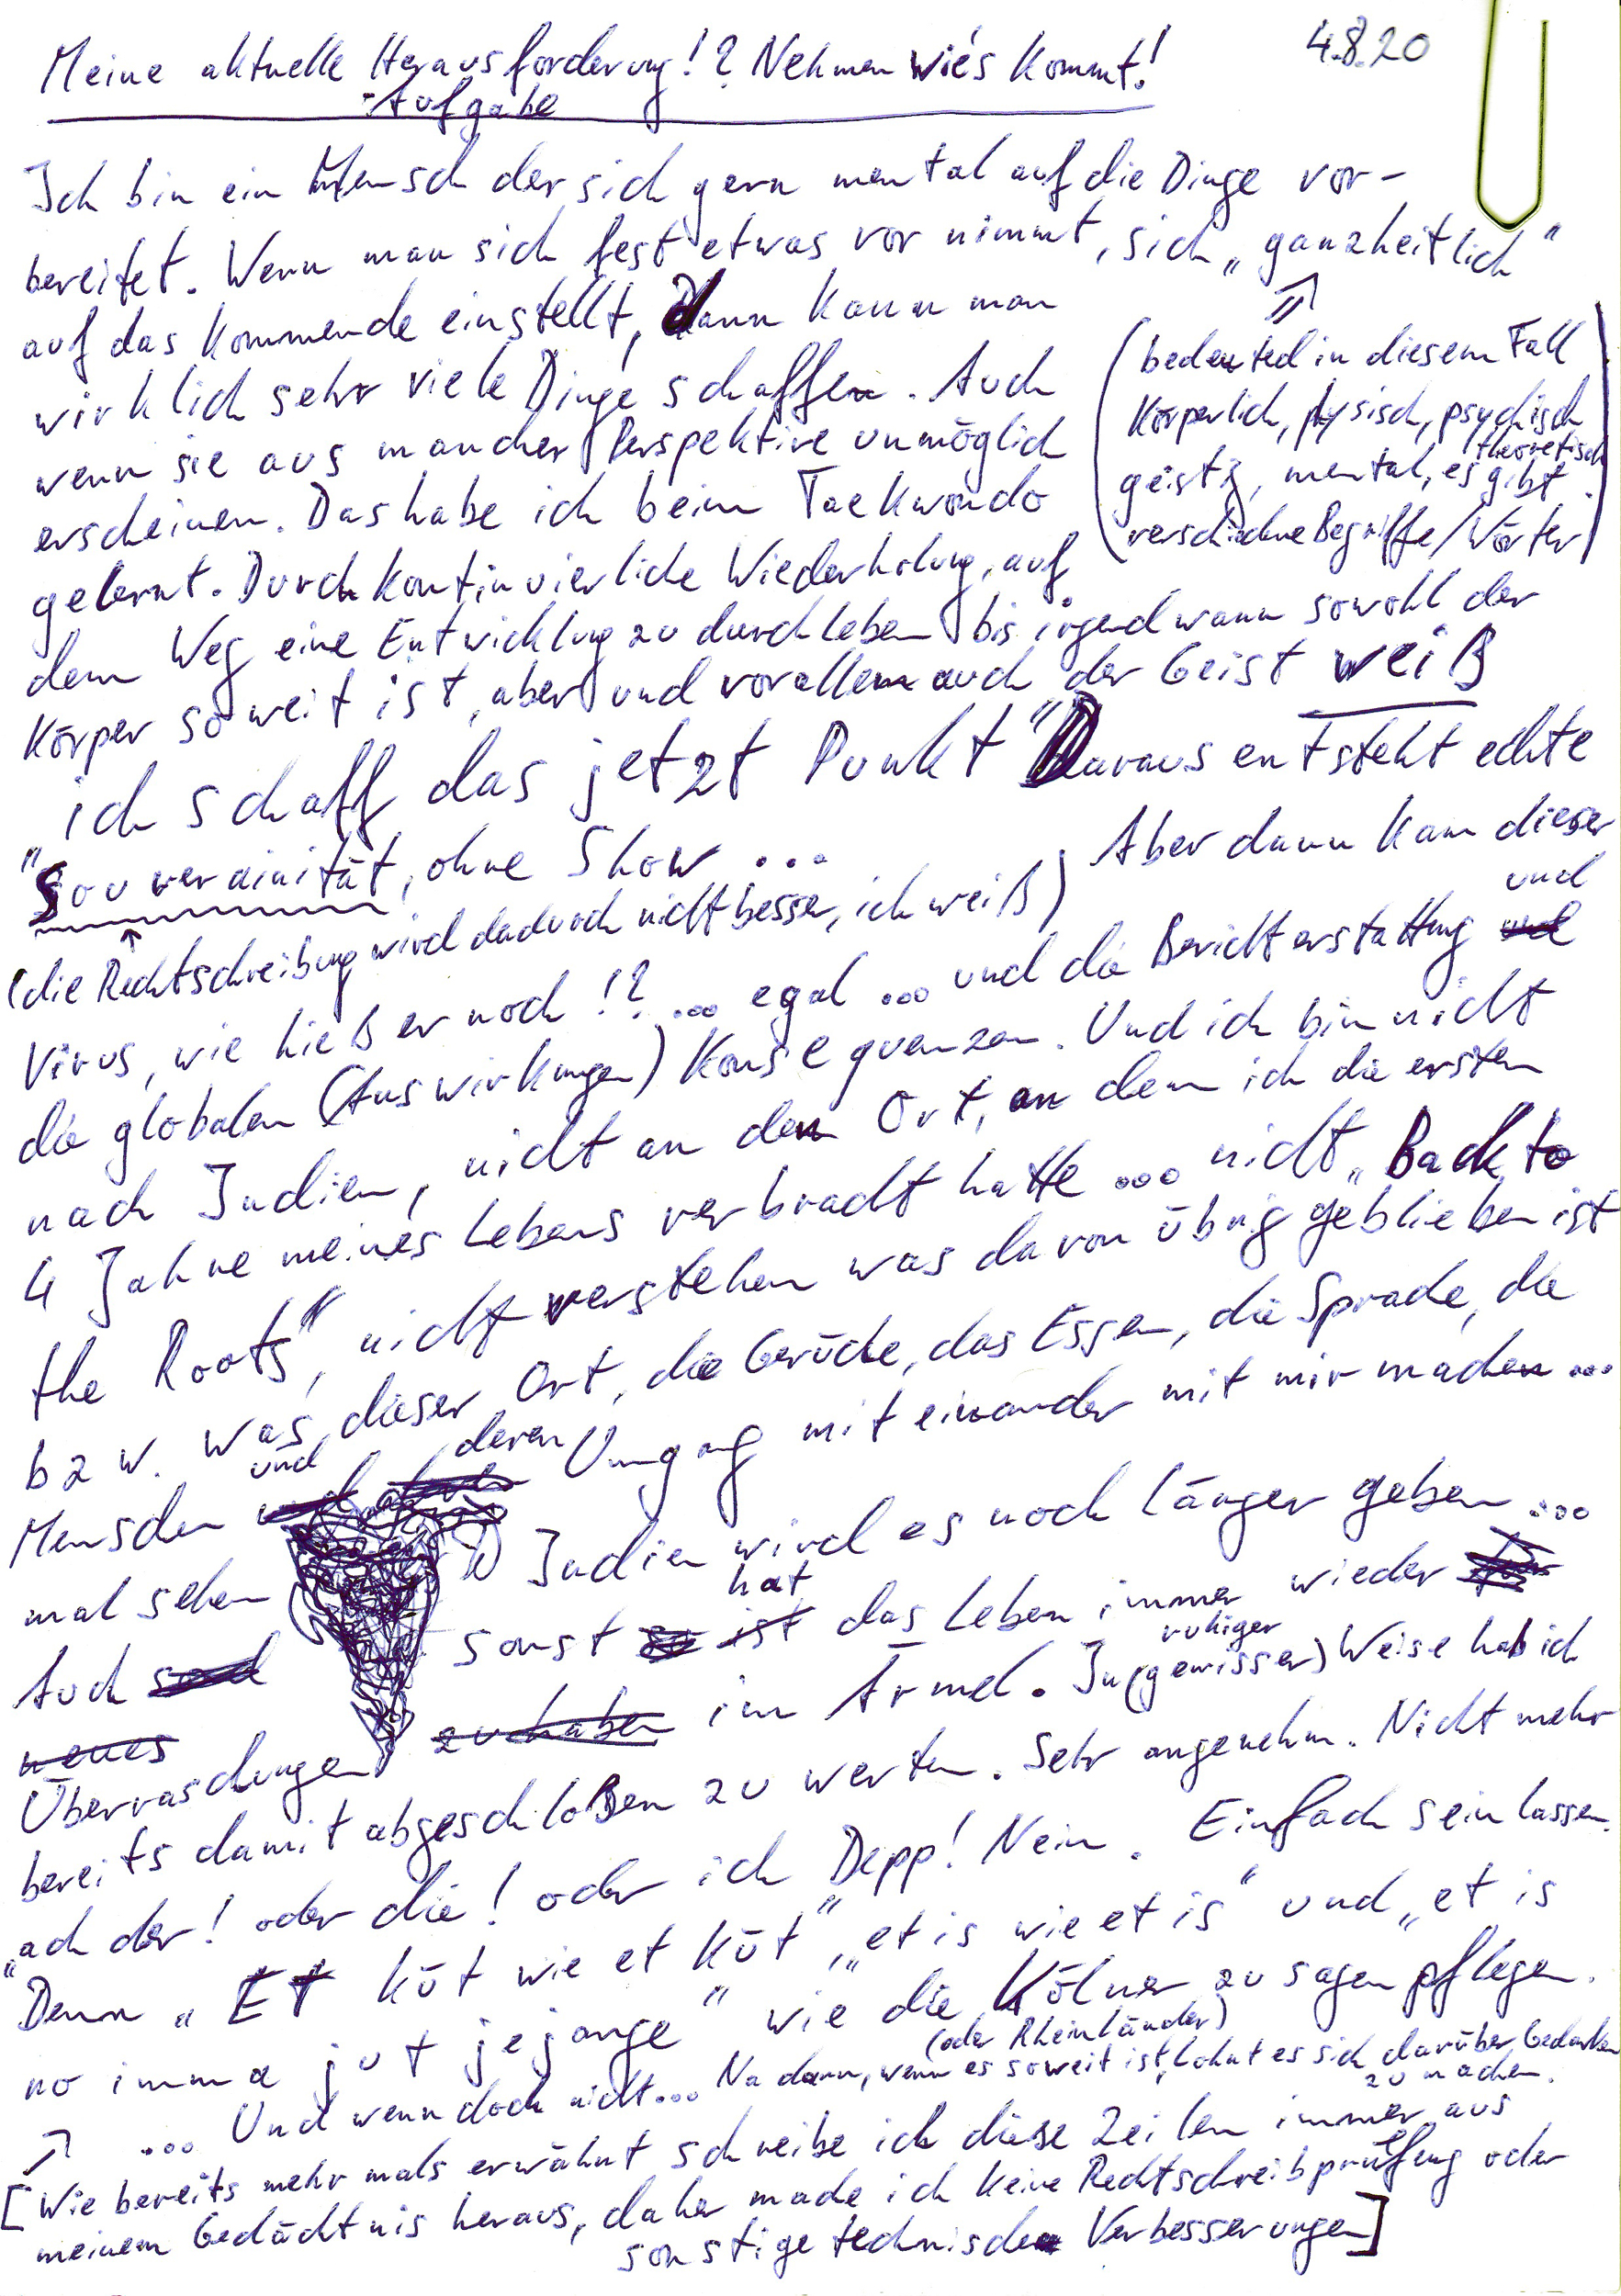 4.8.20
Meine aktuelle Herausforderung!? Nehmen wie's kommt!
-Aufgabe
Ich bin ein Mensch der sich gern mental auf die Dinge vor-
bereitet. Wenn man sich fest etwas vor nimmt, sich „ganzheitlich"
auf das kommende einstellt, dann kann man
wirklich sehr viele Dinge schaffen. Auch
wenn sie aus mancher Perspektive unmöglich
erscheinen. Das habe ich beim Taekwondo
(bedeuted in diesem Fall
körperlich, physisch, psychisch
theoretisch
geistig, mental, es gibt
verschiedne Begriffe/Wörter)
gelernt. Durch kontinuierliche Wiederholung, auf
dem Weg eine Entwicklung zu durchleben bis irgendwann sowohl der
Körper soweit ist, aber und vorallem auch der Geist weiß
"ich schaff das jetzt Punkt" Daraus entsteht echte
Souverainität, ohne Show ...
(die Rechtschreibung wird dadurch nicht besser, ich weiß) Aber dann kam dieser
Virus, wie hieß er noch!? ... egal ... und die Berichterstattung und
die globalen (Auswirkungen) Konsequenzen. Und ich bin nicht
nach Indien, nicht an den Ort, an dem ich die ersten
4 Jahre meines Lebens verbracht hatte ... nicht „Back to
the Roots", nicht verstehen was davon übrig geblieben ist
bzw. was dieser Ort, die Gerüche, das Essen, die Sprache, die
Menschen und deren Umgang mit einander mit mir machen ...
mal sehen Indien wird es noch länger geben ...
Auch sonst hat das Leben immer wieder
neues
Überraschungen zu haben im Ärmel. In (gewisser) ruhiger Weise hab ich
bereits damit abgeschloßen zu werten. Sehr angenehm. Nicht mehr
„ach der! oder die! oder ich Depp! Nein. Einfach sein lassen.
Denn „Et küt wie et küt", „et is wie et is" und „et is
no imma jut jejange" wie die Kölner zu sagen pflegen.
(oder Rheinländer)
... Und wenn doch nicht... Na dann, wenn es soweit ist, lohnt es sich darüber Gedanken
zu machen.
[Wie bereits mehrmals erwähnt schreibe ich diese Zeilen immer aus
meinem Gedächtnis heraus, daher mache ich keine Rechtschreibprüfung oder
sonstige technischen Verbesserungen]